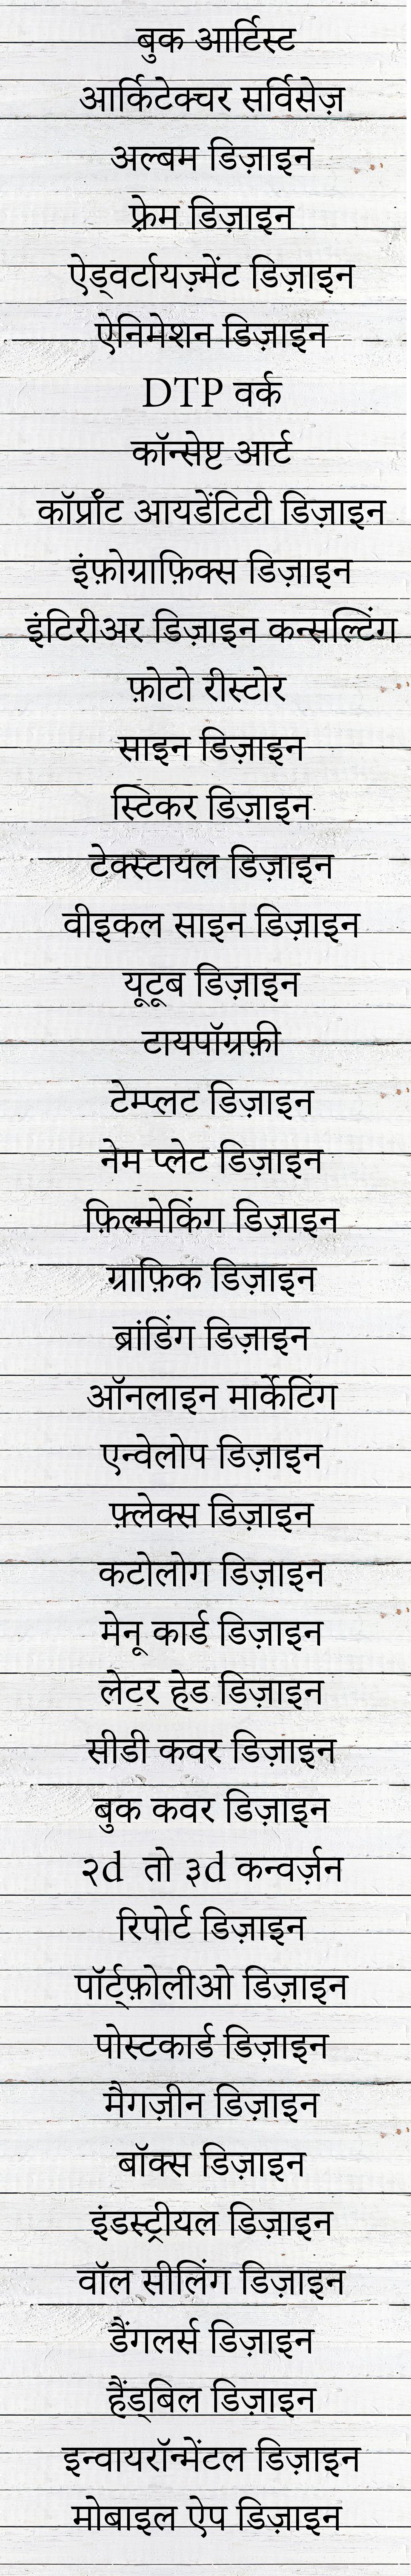 बुक आर्टिस्ट
आर्किटेक्चर सर्विसेज़
अल्बम डिज़ाइन
फ़्रेम डिज़ाइन
ऐड्वर्टायज़्मेंट डिज़ाइन
ऐनिमेशन डिज़ाइन
DTP वर्क
कॉन्सेप्ट आर्ट
कॉर्प्रॉट आयडेंटिटी डिज़ाइन
इंफ़ोग्राफ़िक्स डिज़ाइन
इंटिरीअर डिज़ाइन कन्सल्टिंग
फ़ोटो रीस्टोर
साइन डिज़ाइन
स्टिकर डिज़ाइन
टेक्स्टायल डिज़ाइन
वीइकल साइन डिज़ाइन
यूटूब डिज़ाइन
टायपॉग्रफ़ी
टेम्प्लट डिज़ाइन
नेम प्लेट डिज़ाइन
फ़िल्ममेकिंग डिज़ाइन
ग्राफ़िक डिज़ाइन
ब्रांडिंग डिज़ाइन
ऑनलाइन मार्केटिंग
एन्वेलोप डिज़ाइन
फ़्लेक्स डिज़ाइन
कटोलोग डिज़ाइन
मेनू कार्ड डिज़ाइन
लेटर हेड डिज़ाइन
सीडी कवर डिज़ाइन
बुक कवर डिज़ाइन
२d तो ३d कन्वर्ज़न
रिपोर्ट डिज़ाइन
पॉर्ट्फ़ोलीओ डिज़ाइन
पोस्टकार्ड डिज़ाइन
मैगज़ीन डिज़ाइन
बॉक्स डिज़ाइन
इंडस्ट्रीयल डिज़ाइन
वॉल सीलिंग डिज़ाइन
डैंगलर्स डिज़ाइन
हैंड्बिल डिज़ाइन
इन्वायरॉन्मेंटल डिज़ाइन
मोबाइल ऐप डिज़ाइन